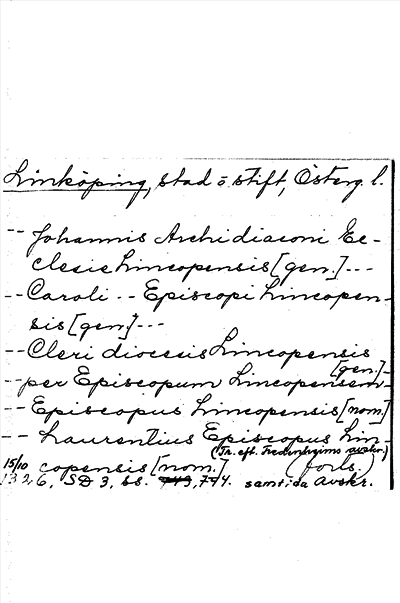 Linköping, stad o. stift, Österg. l.
-- Johannis Archidiaconi Ec-
clesie Lincopensis [gen.] ---
-- Caroli -- Episcopi Lincopen-
sis [gen.] ---
-- Cleri diocesis Lincopensis
[gen.] --
-- per Episcopum Lincopensem --
-- Episcopus Lincopensis [nom.]
-- Laurentius Episcopus Lin-
(Tr. eft. Fredenheims avskr.)
copensis [nom.] (forts.)
15/10
1326, SD 3, ss. 743, 744. samtida avskr.